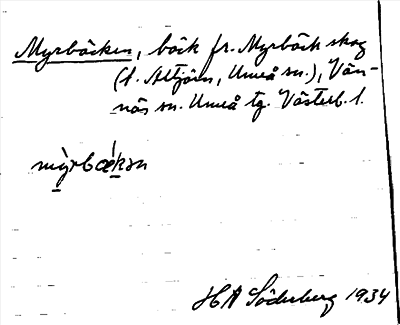 Myrbäcken, bäck fr. Myrbäck skog
(t. Altjärn, Umeå sn.), Vän-
näs sn. Umeå tg. Västerb. l.
mỳrbækən
H A Söderberg 1934